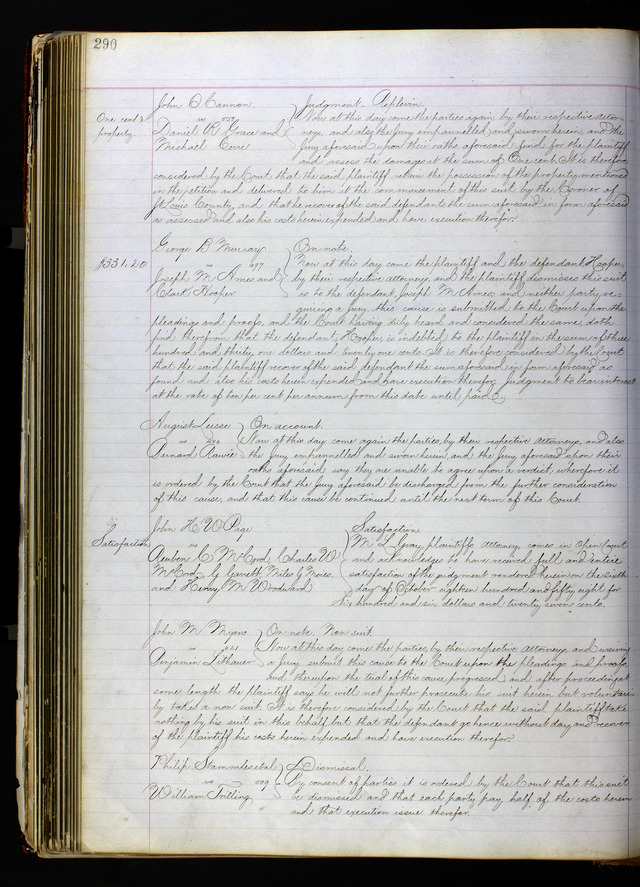 290
John O'Cannon } Judgment - Replevin
One cent &
property.
vs Now at this day come the parties again by their respective attor-
Daniel B Grace and neys, and also the Jury empannelled and sworn herein, and the
Michael Jury aforesaid upon their oaths aforesaid find for the plaintiff
and assess the damages at the sum of One cent. It is therefore
considered by the Court that the said plaintiff retain the possession of the property mentioned
in the petition and delivered to him at the commencement of this suit by the Coroner of
St Louis County, and that he recover of the said defendants the sum aforesaid in form aforesaid
as assessed and also his costs herein expended and have execution therefor.
George B Murray } On note.
$331,20 vs Now at this day come the plaintiff and the defendant, Hooper,
Joseph M Ames and by their respective attorneys and the plaintiff dismisses this suit
Clark Hooper as to the defendant, Joseph M Ames, and neither party re-
quiring a Jury, this cause is submitted to the Court upon the
pleadings and proofs, and the Court having duly heard and considered the same, doth
find therefrom that the defendant, Hooper is indebted to the plaintiff in the sum of three
hundred and thirty one dollars and twenty one cents. It is therefore considered by the Court
that the said plaintiff recover of the said defendant the sum aforesaid in form aforesaid as
found and also his costs herein expended and have execution therefor, Judgment to bear interest
at the rate of ten per cent per annum from this date until paid.
August Leisse } On account.
vs Now at this day come again the parties, by their respective attorneys, and also
Bernard the Jury empannelled and sworn herein, and the Jury aforesaid upon their
oaths aforesaid, say they are unable to agree upon a verdict, wherefore it
is ordered by the Court that the Jury aforesaid be discharged from the further consideration
of this cause, and that this cause be continued until the next term of this Court.
John H W Page } Satisfaction
Satisfaction vs M L Gray, plaintiffs attorney, comes in Open Court
Reuben C McCord, Charles W and acknowledges to have received full and entire
McCord, G Garrett, Miles G Moies satisfaction of the judgment rendered herein on the sixth
and Henry M Woodward day of October eighteen hundred and fifty eight for
Six hundred and six dollars and twenty seven cents.
John M Myers } On note. Non suit.
vs Now at this day come the parties, by their respective attorneys, and waiving
Benjamin Lithauer a Jury submit this cause to the Court upon the pleadings and proofs
and thereupon the trial of this cause progressed and after proceeding at
some length the plaintiff says he will not further prosecute his suit herein but voluntari-
ly takes a non suit. It is therefore considered by the Court that the said plaintiff take
nothing by his suit in this behalf but that the defendant go hence without day and recover
of the plaintiff his costs herein expended and have execution therefor.
Philip Stammdesetal } Dismissal.
vs By consent of parties it is ordered by the Court that this suit
William Trilling be dismissed and that each party pay half of the costs herein
and that execution issue therefor.